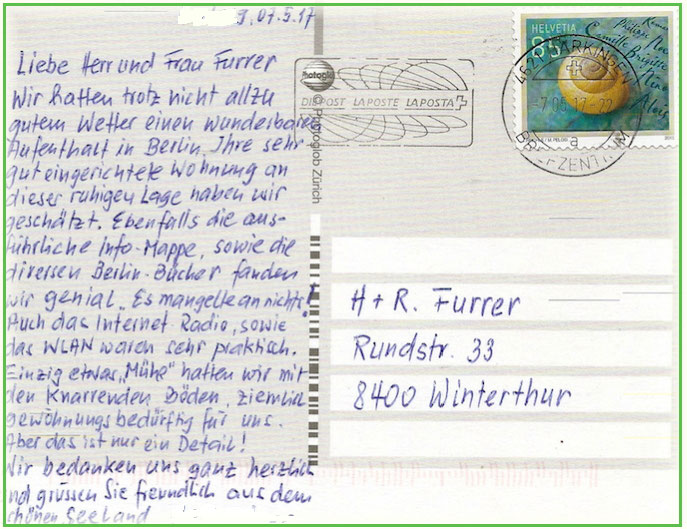 07.5.17
Liebe Herr und Frau Furrer
Wir hatten trotz nicht allzu
gutem Wetter einen wunderbaren
Aufenthalt in Berlin. Ihre sehr
gut eingerichtete Wohnung an
dieser ruhigen Lage haben wir
geschätzt. Ebenfalls die aus-
führliche Info-Mappe, sowie die
diversen Berlin-Bücher fanden
wir genial. Es mangelte an nichts!
Auch das Internet Radio, sowie
das WLAN waren sehr praktisch.
Einzig etwas „Mühe" hatten wir mit
den Knarrenden Böden, ziemlich
gewöhnungsbedürftig für uns.
Aber das ist nur ein Detail!
Wir bedanken uns ganz herzlich
und grüssen Sie freundlich aus dem
schönen Seeland
Photoglob
© Photoglob Zürich
DIE POST LA POSTE LA POSTA
HELVETIA
85
Camille Brigitte
Nino
Alois
4621 HÄRKINGEN
-7.05.17-22
a
BRIEFZENTRUM
H + R. Furrer
Rundstr. 33
8400 Winterthur